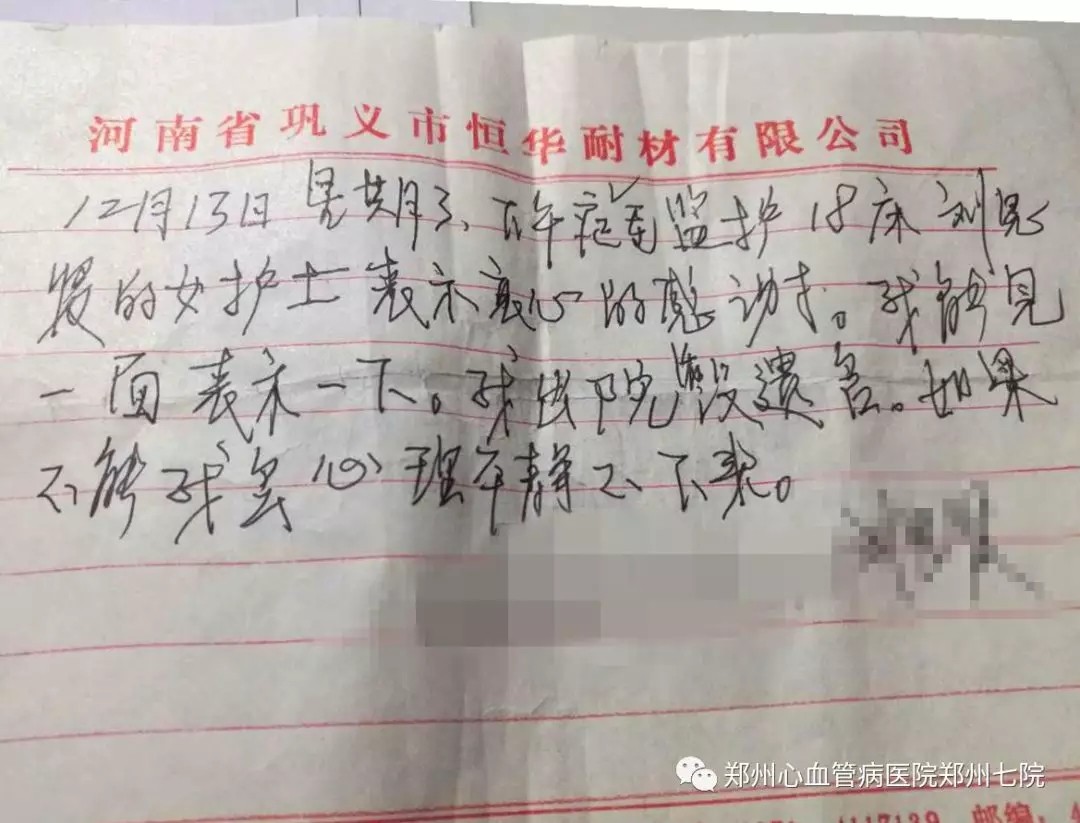 河南省巩义市恒华耐材有限公司
12月13日星期三、下午 监护18床刘
的女护士表示衷心的感动。我能见
一面表示一下。我出院没遗。如果
不能我会心理平静不下来。
郑州心血管病医院郑州七院
4117139 邮编：4